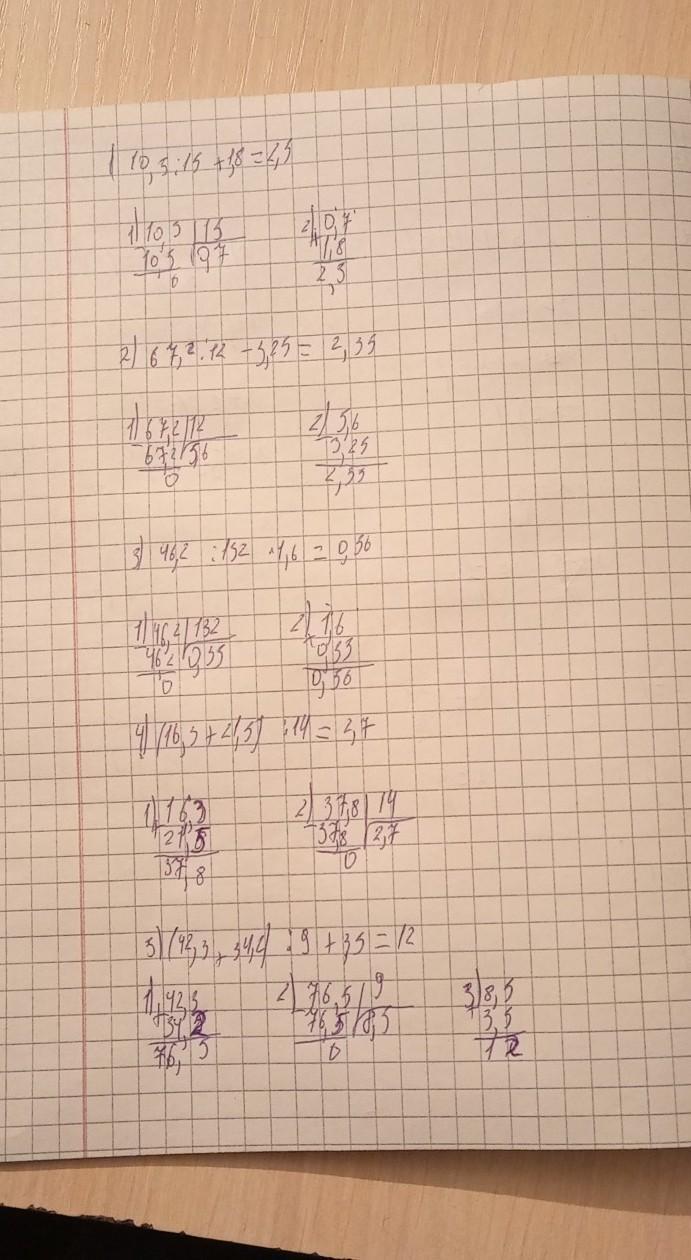 1) 10,5 : 15 + 1,8 = 2,5
1) 10,5 | 15   2) 0,7
10,5 | 0,7   + 1,8
0   2,5
2) 67,2 : 12 - 3,25 = 2,35
1) 67,2 | 12   2) 5,6
67,2 | 5,6   - 3,25
0   2,35
3) 46,2 : 132 · 1,6 = 0,56
1) 46,2 | 132   2) 1,6
462 | 0,35   × 0,35
0   0,56
4) (16,3 + 21,5) : 14 = 2,7
1) 16,3   2) 37,8 | 14
+ 21,5   37,8 | 2,7
37,8   0
5) (42,3 + 34,2) : 9 + 3,5 = 12
1) 42,3   2) 76,5 | 9   3) 8,5
+ 34,2   76,5 | 8,5   3,5
76,5   0   12